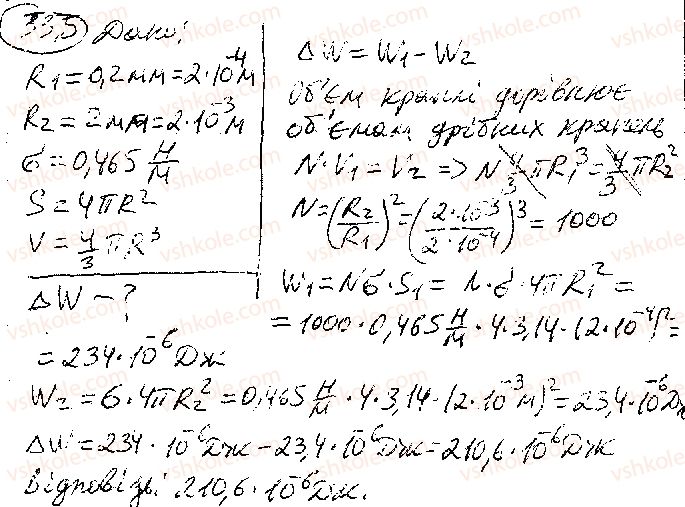 33.5 Дано:
R₁ = 0,2 мм = 2·10⁻⁴ м
R₂ = 2 мм = 2·10⁻³ м
σ = 0,465 Н/м
S = 4πR²
V = 4/3 πR³
ΔW - ?
ΔW = W₁ - W₂
Об'єм краплі дорівнює
об'ємам дрібних крапель
N·V₁ = V₂ => N 4/3 πR₁³ = 4/3 πR₂²
N = (R₂/R₁)² = (2·10⁻³/2·10⁻⁴)³ = 1000
W₁ = Nσ·S₁ = N·σ·4πR₁² =
= 1000·0,465 Н/м · 4·3,14·(2·10⁻⁴)² =
= 234·10⁻⁶ Дж
W₂ = σ·4πR₂² = 0,465 Н/м · 4·3,14·(2·10⁻³ м)² = 23,4·10⁻⁶ Дж
ΔW = 234·10⁻⁶ Дж - 23,4·10⁻⁶ Дж = 210,6·10⁻⁶ Дж
Відповідь: 210,6·10⁻⁶ Дж.
vshkole.com